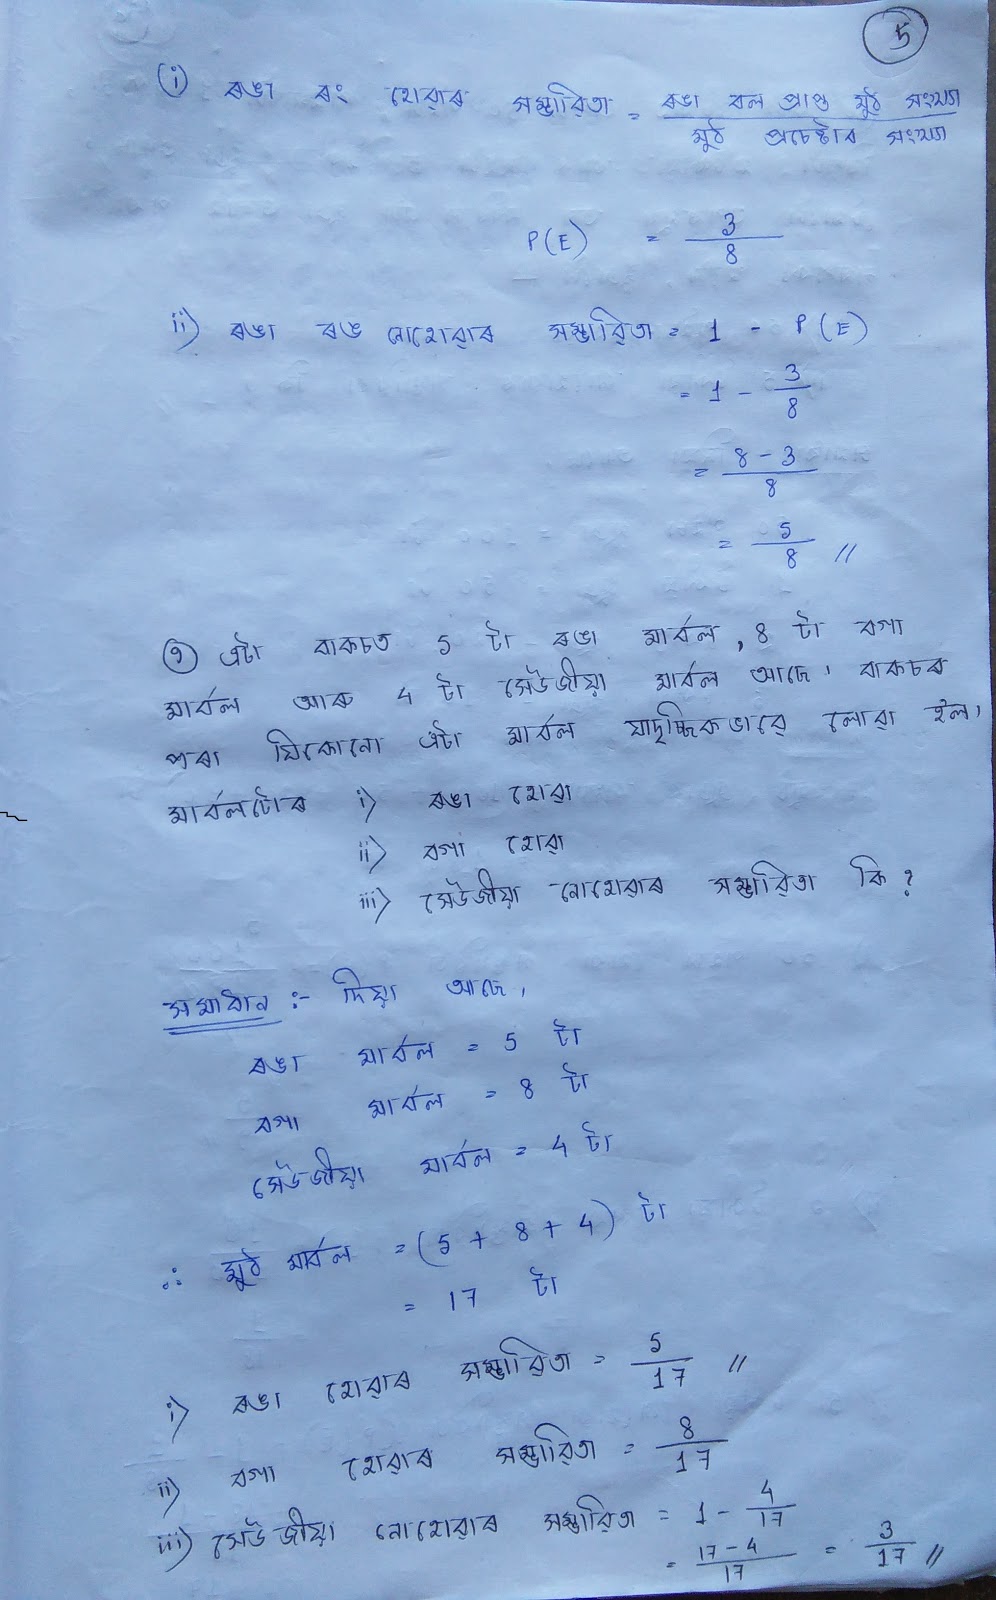 5
(i) ৰঙা ৰং হোৱাৰ সম্ভাৱিতা = ৰঙা বল প্ৰাপ্ত মুঠ সংখ্যা / মুঠ প্ৰচেষ্টাৰ সংখ্যা
P(E) = 3/8
ii) ৰঙা ৰঙ নোহোৱাৰ সম্ভাৱিতা = 1 - P(E)
= 1 - 3/8
= 8-3/8
= 5/8 //
৩) এটা বাকচত 5 টা ৰঙা মাৰ্বল, 8 টা বগা
মাৰ্বল আৰু 4 টা সেউজীয়া মাৰ্বল আছে। বাকচৰ
পৰা যিকোনো এটা মাৰ্বল যাদৃচ্ছিকভাৱে লোৱা হ'ল।
মাৰ্বলটোৰ i) ৰঙা হোৱা
ii) বগা হোৱা
iii) সেউজীয়া নোহোৱাৰ সম্ভাৱিতা কি?
সমাধান :- দিয়া আছে,
ৰঙা মাৰ্বল = 5 টা
বগা মাৰ্বল = 8 টা
সেউজীয়া মাৰ্বল = 4 টা
∴ মুঠ মাৰ্বল = (5 + 8 + 4) টা
= 17 টা
i) ৰঙা হোৱাৰ সম্ভাৱিতা = 5/17 //
ii) বগা হোৱাৰ সম্ভাৱিতা = 8/17
iii) সেউজীয়া নোহোৱাৰ সম্ভাৱিতা = 1 - 4/17
= 17-4/17 = 3/17 //